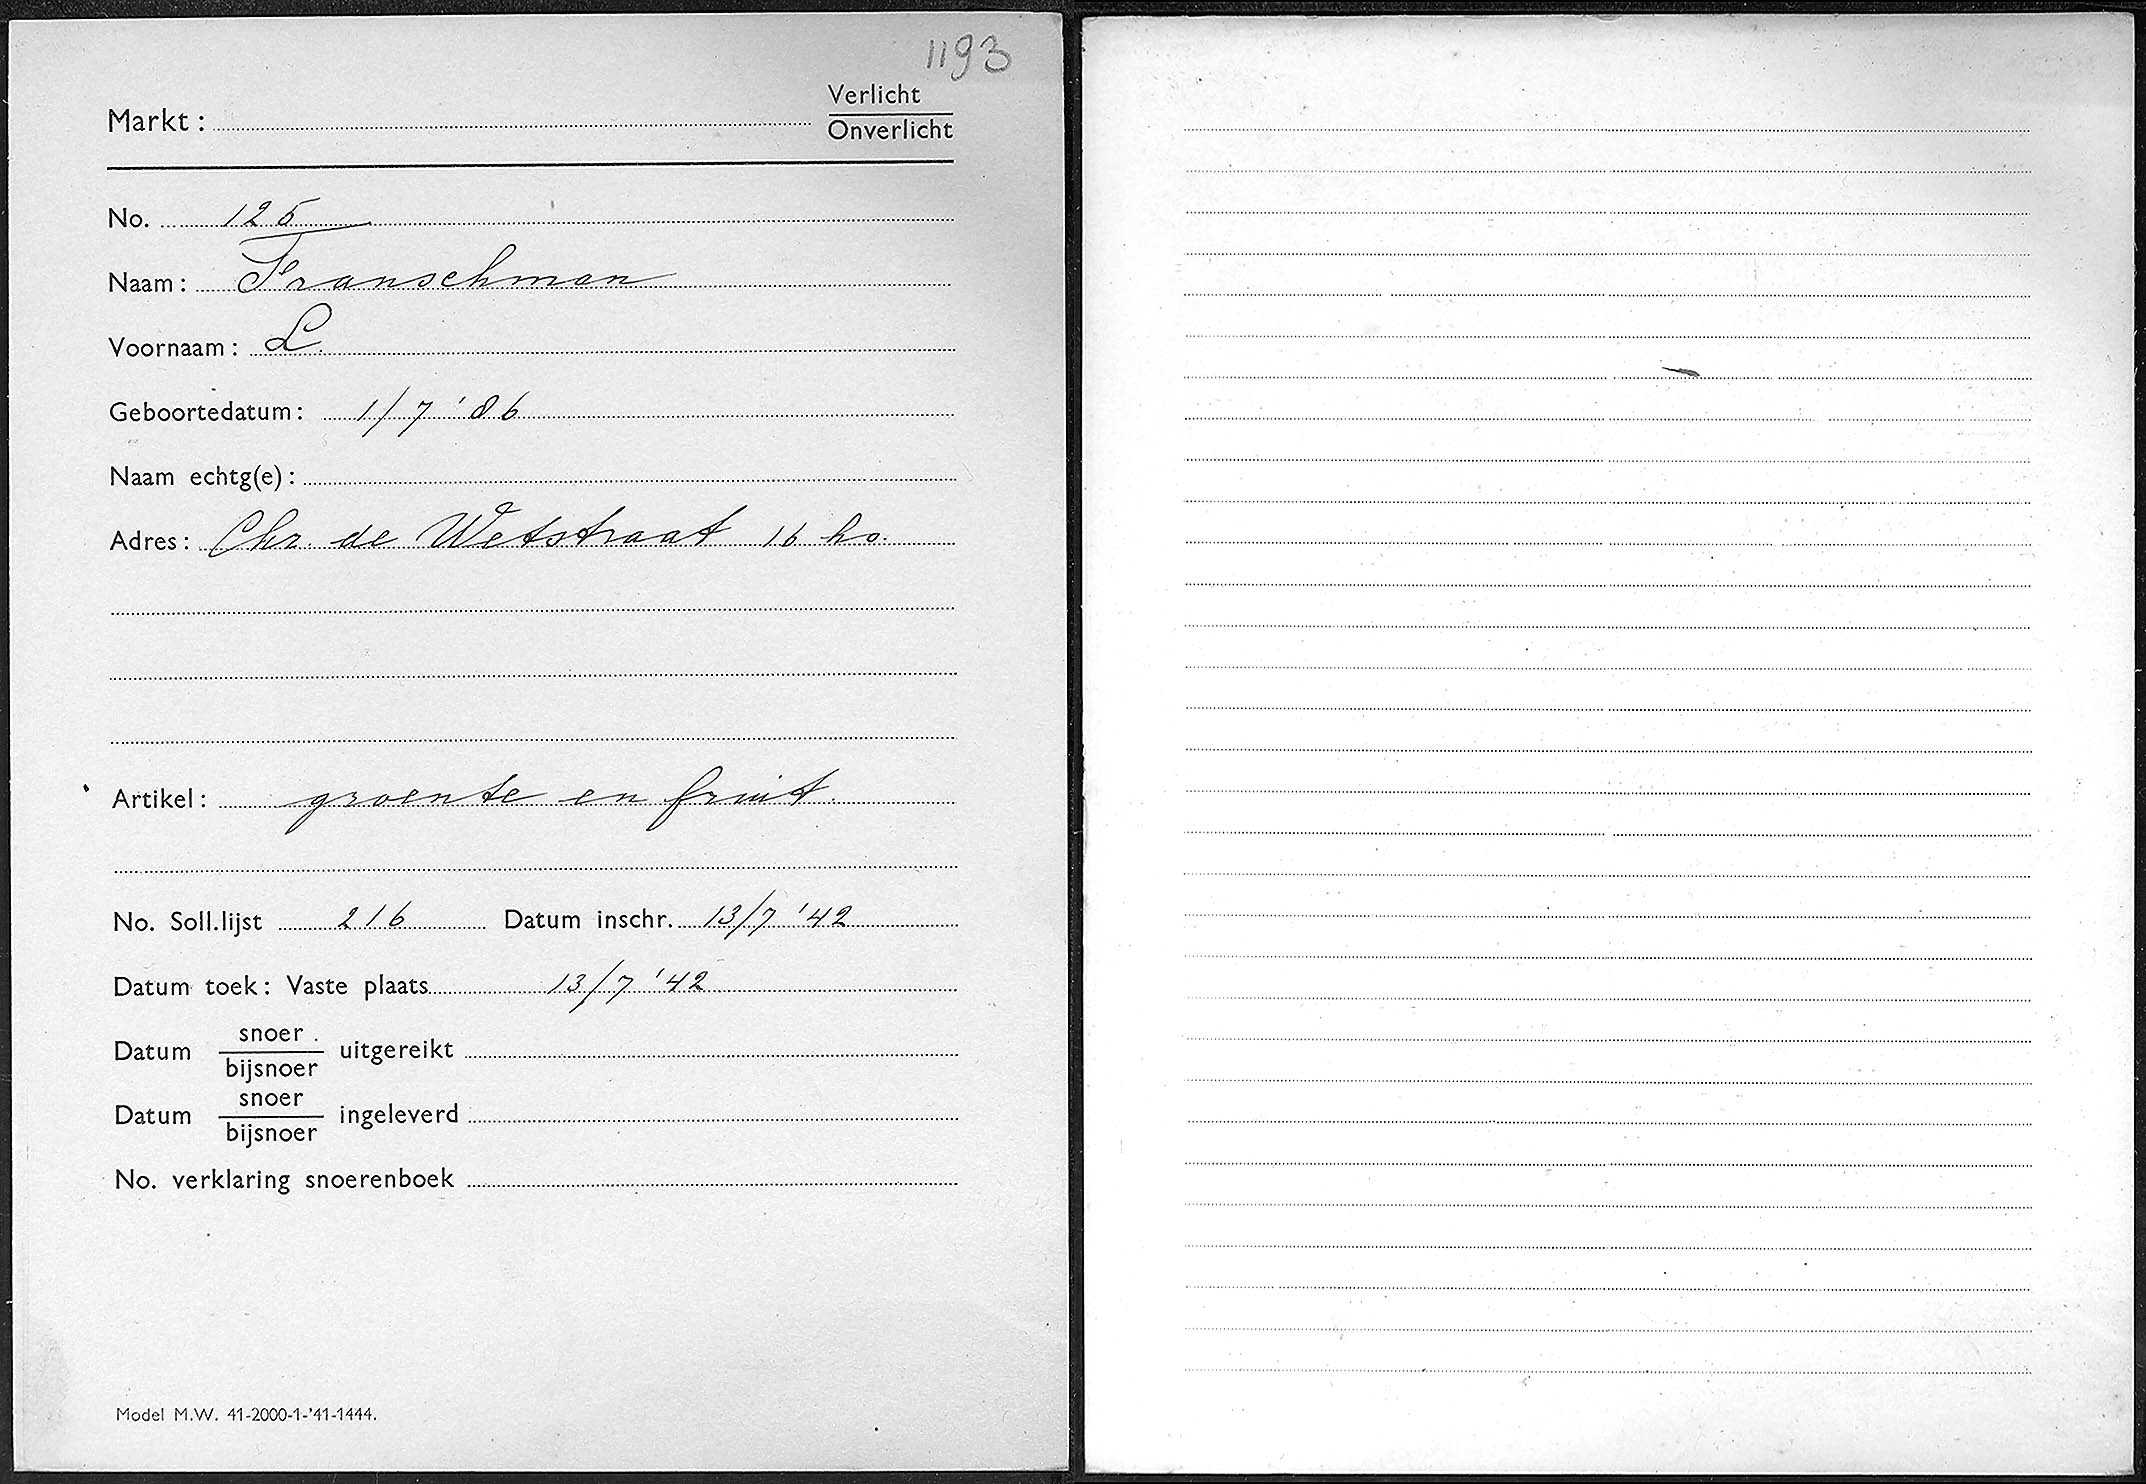 1193
Markt: Verlicht
Onverlicht
No. 125
Naam: Franschman
Voornaam: L.
Geboortedatum: 1/7 '86
Naam echtg(e):
Adres: Chr. de Wetstraat 16 hs.
Artikel: groente en fruit.
No. Soll.lijst 216 Datum inschr. 13/7 '42
Datum toek: Vaste plaats 13/7 '42
Datum snoer
bijsnoer uitgereikt
Datum snoer
bijsnoer ingeleverd
No. verklaring snoerenboek
Model M.W. 41-2000-1-'41-1444.